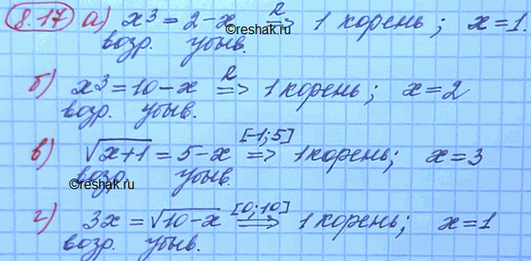 8.17 а) x³ = 2 - x ⇒ R 1 корень; x = 1.
возр. убыв.
б) x³ = 10 - x ⇒ R 1 корень; x = 2
возр. убыв.
в) √x+1 = 5 - x ⇒ [-1; 5] 1 корень; x = 3
возр. убыв.
г) 3x = √10-x ⇒ [0; 10] 1 корень; x = 1
возр. убыв.
©reshak.ru
©reshak.ru